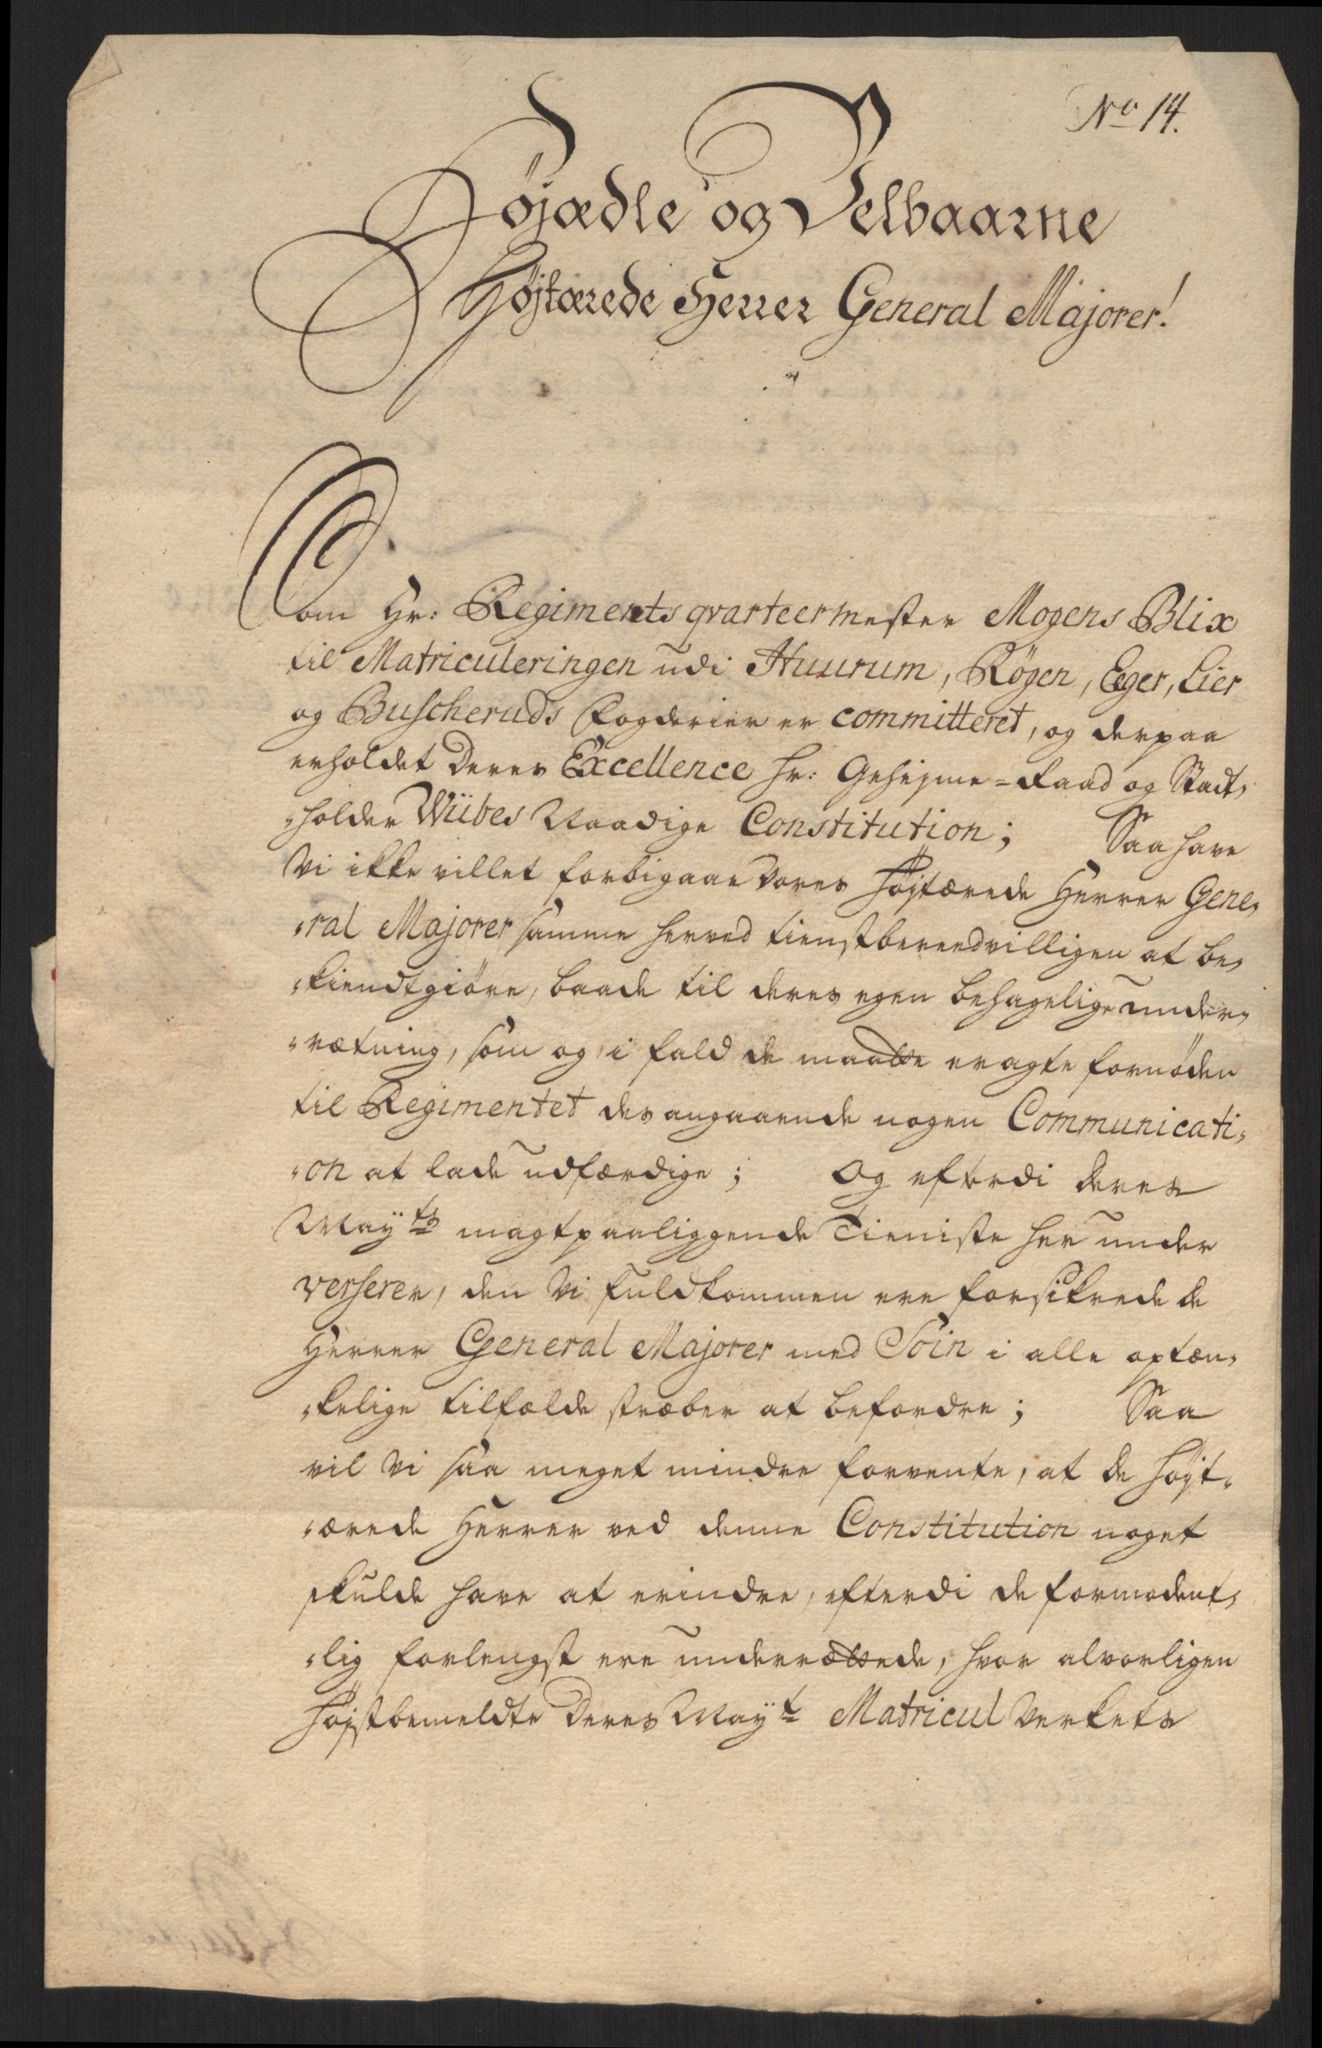 No 14.
Højædle og Velbaarne
Højtærede Herrer General Majorer!
Som Hr: Regimentsqvarteermester Mogens Blix
til Matriculeringen udi Huurum, Røgen, Eger, Lier
og Buscheruds Fogderier er committeret, og derpaa
erholdet Deres Excellence Hr: Geheime-Raad og Stadt,
,holder Wibes Naadige Constitution; Saa have
Vi ikke villet forbigaae Vores Højtærede Herrer Gene,
,ral Majorer samme herved tienstbereedvilligen at be,
,kiendtgiöre, baade til deres egen behagelige under,
,rætning, som og i fald de maatte eragte fornøden
til Regimentet desangaaende nogen Communicati,
,on at lade udfærdige; Og efterdi deres
Mayts magtpaaliggende Tieniste her under
verserer, den Vi fuldkommen ere forsikrede de
Herrer General Majorer med Soin i alle optæn,
,kelige tilfælde stræber at befordre; Saa
vil Vi saa meget mindre forvente, at de Højt,
,ærede Herrer ved denne Constitution noget
skulde have at erindre, efterdi de formodent,
,lig forlengst ere underrættede, hvor alvorligen
Højstbemeldte Deres Mayt Matricul Verkets